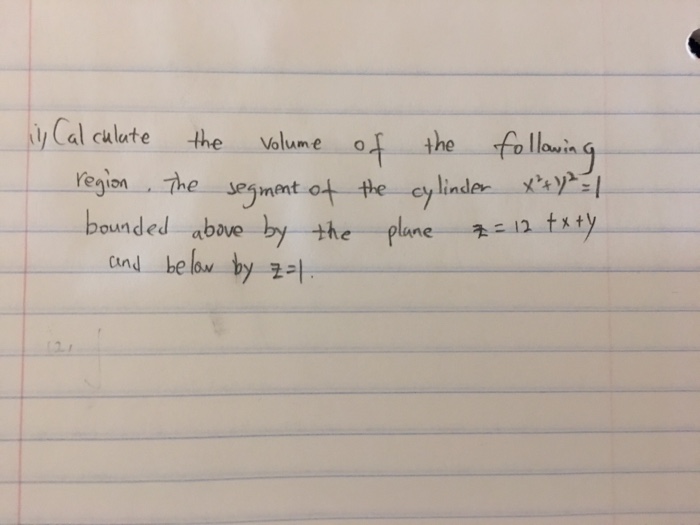 ii) Calculate the volume of the following
region. The segment of the cylinder x²+y²=1
bounded above by the plane z=12+x+y
and below by z=1.